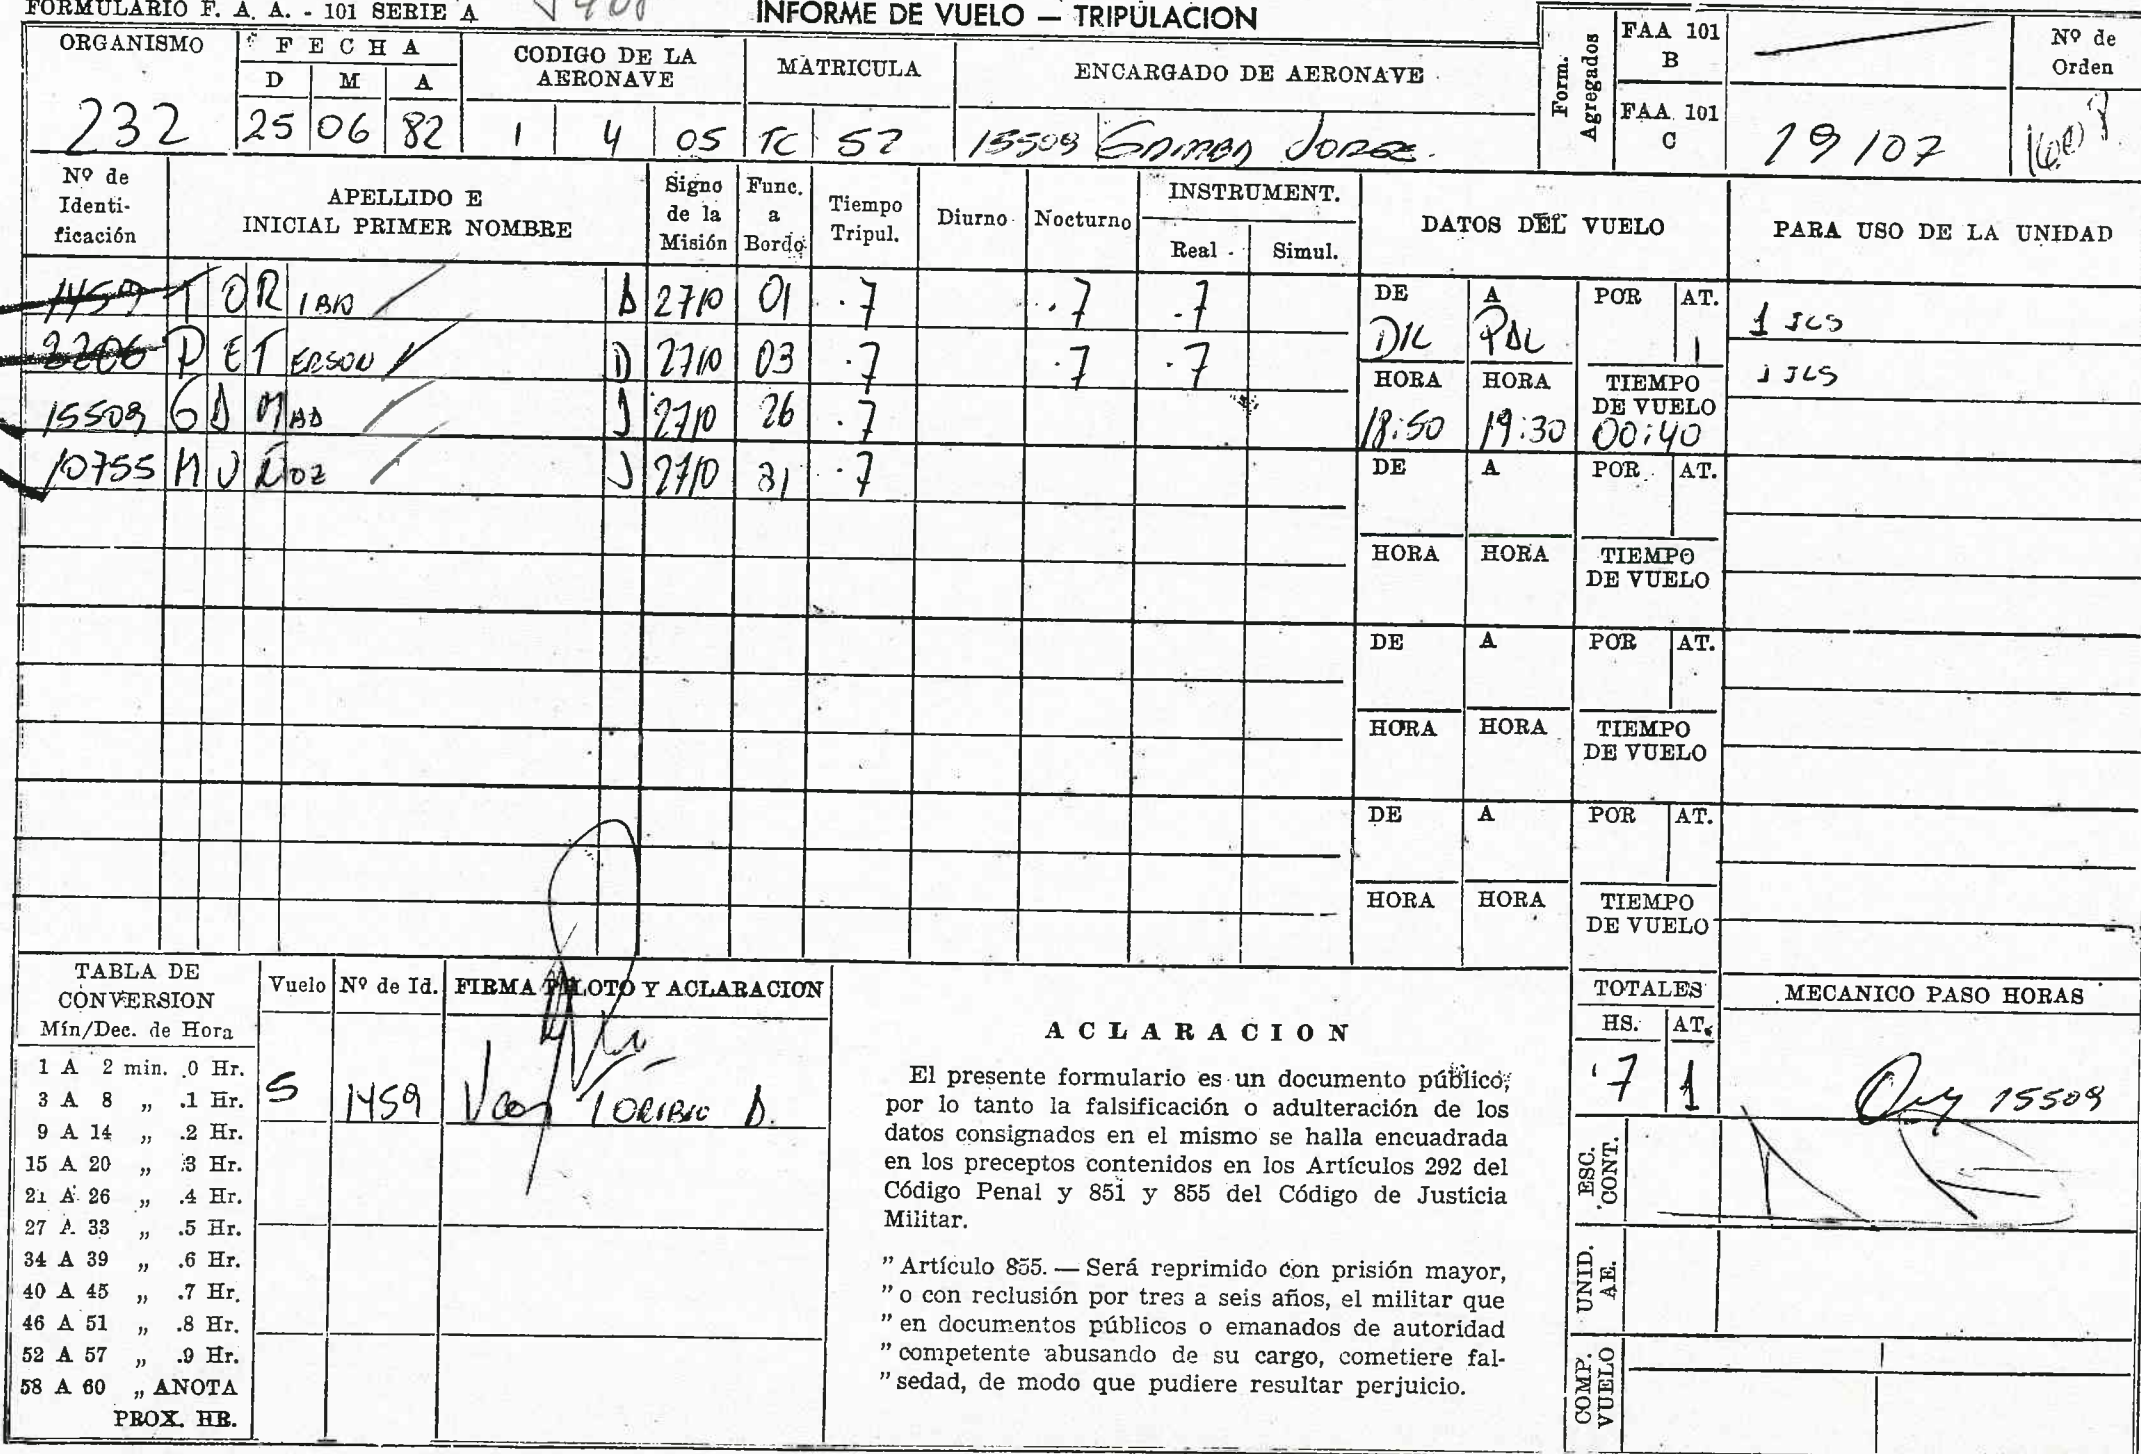 FORMULARIO F. A. A. - 101 SERIE A
INFORME DE VUELO — TRIPULACION
ORGANISMO
232
FECHA
D M A
25 06 82
CODIGO DE LA AERONAVE
1 4 05
MATRICULA
TC 57
ENCARGADO DE AERONAVE
15509 GAMBA JORGE.
Form. Agregados
FAA 101 B
FAA 101 C
19/07
Nº de Orden
Nº de Identificación
APELLIDO E INICIAL PRIMER NOMBRE
Signo de la Misión
Func. a Bordo
Tiempo Tripul.
Diurno
Nocturno
INSTRUMENT.
Real
Simul.
DATOS DEL VUELO
PARA USO DE LA UNIDAD
1459 TORIBIO A 2710 01 .7 .7 .7
2206 PETERSON A 2710 03 .7 .7 .7
15509 GAMBA J 2710 26 .7
10755 MUÑOZ J 2710 31 .7
DE A POR AT.
DIL PAL 1
HORA HORA TIEMPO DE VUELO
18:50 19:30 00:40
1 JLS
1 JLS
DE A POR AT.
HORA HORA TIEMPO DE VUELO
DE A POR AT.
HORA HORA TIEMPO DE VUELO
DE A POR AT.
HORA HORA TIEMPO DE VUELO
TABLA DE CONVERSION
Mín/Dec. de Hora
1 A 2 min. .0 Hr.
3 A 8 „ .1 Hr.
9 A 14 „ .2 Hr.
15 A 20 „ .3 Hr.
21 A 26 „ .4 Hr.
27 A 33 „ .5 Hr.
34 A 39 „ .6 Hr.
40 A 45 „ .7 Hr.
46 A 51 „ .8 Hr.
52 A 57 „ .9 Hr.
58 A 60 „ ANOTA
PROX. HR.
Vuelo Nº de Id. FIRMA PILOTO Y ACLARACION
S 1459 Vcom TORIBIO A.
ACLARACION
El presente formulario es un documento público,
por lo tanto la falsificación o adulteración de los
datos consignados en el mismo se halla encuadrada
en los preceptos contenidos en los Artículos 292 del
Código Penal y 851 y 855 del Código de Justicia
Militar.
" Artículo 855. — Será reprimido con prisión mayor,
" o con reclusión por tres a seis años, el militar que
" en documentos públicos o emanados de autoridad
" competente abusando de su cargo, cometiere fal-
" sedad, de modo que pudiere resultar perjuicio.
TOTALES
HS. AT.
.7 1
MECANICO PASO HORAS
15509
ESC. CONT.
UNID. AE.
COMP. VUELO